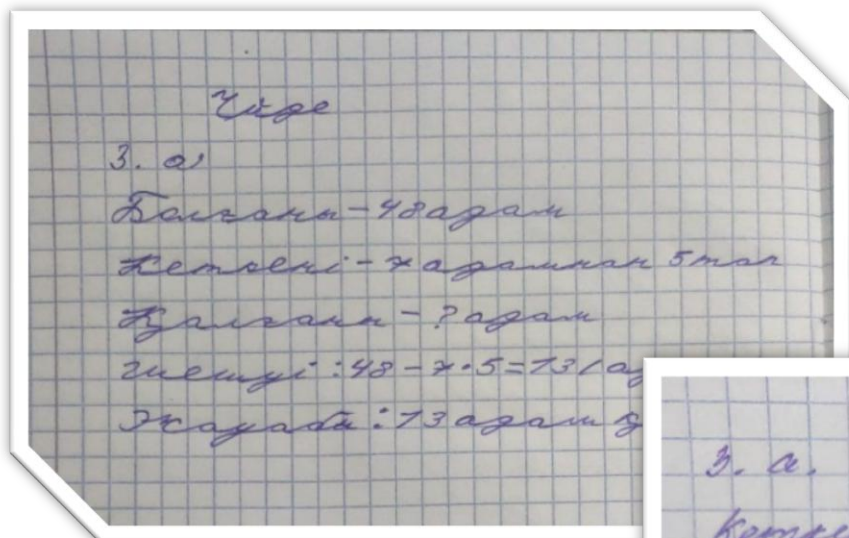 Үйде
3. а)
Болғаны – 48 адам
Кеткені – 7 адамнан 5 топ
Қалғаны – ? адам
Шешуі: 48 – 7 · 5 = 13 (ад
Жауабы: 13 адам қ
3. а.
Кетке